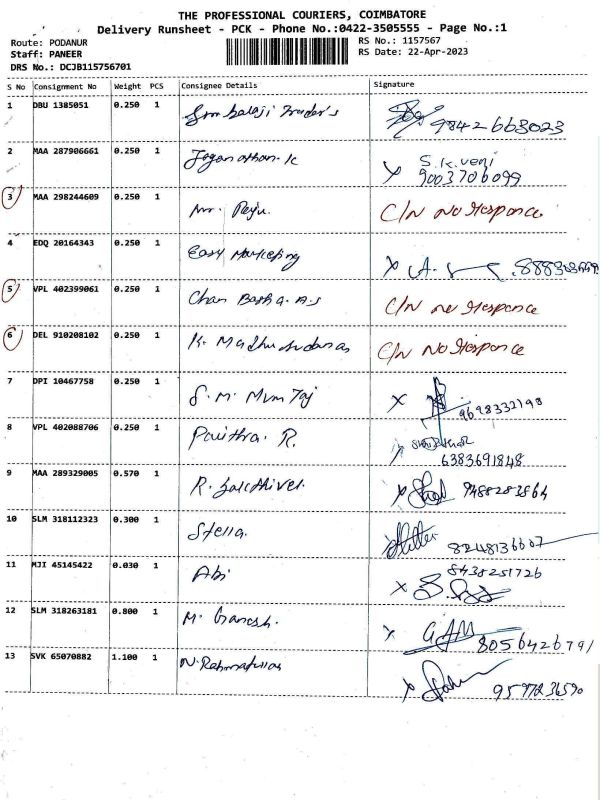 THE PROFESSIONAL COURIERS, COIMBATORE
Delivery Runsheet - PCK - Phone No.:0422-3505555 - Page No.:1
Route: PODANUR RS No.: 1157567
Staff: PANEER RS Date: 22-Apr-2023
DRS No.: DCJB115756701
S No Consignment No Weight PCS Consignee Details Signature
1 DBU 1385051 0.250 1 Sri balaji Trader's 9842663023
2 MAA 287906661 0.250 1 Jaganathan. k S.K.veni
9003706099
3 MAA 298244609 0.250 1 Mr. Raju. C/N No Responce
4 EDQ 20164343 0.250 1 Easy Marketing X
5 VPL 402399061 0.250 1 Chan Basha. A.S C/N no Responce
6 DEL 910208102 0.250 1 K. Madhusudanan C/N No Responce
7 DPI 10467758 0.250 1 S. M. Mum Taj X 9698332198
8 VPL 402088706 0.250 1 Pavithra. R. X
6383691848
9 MAA 289329005 0.570 1 R. Sakthivel. X 9488283864
10 SLM 318112323 0.300 1 Stella. 8248136607
11 MJI 45145422 0.030 1 Abi 8438251726
X
12 SLM 318263181 0.800 1 M. Ganesh. X 8056426791
13 SVK 65070882 1.100 1 N. Rahmatullah X 9597236590